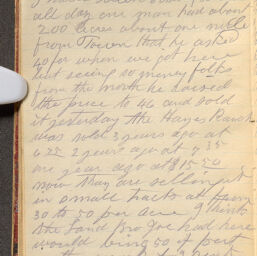 all day one man had about
200 acres about one mile
from Town that he asked
40 for when we got here
but seeing so money folks
from the north he raised
the price to 46 and sold
it yesterday the Hayes Ranch
was sold 3 years ago at
6 25 2 years ago at 7 35
one year ago at $15 50
now they are selling it
in small tracts at from
30 to 50 per acre I think
the land Bro Joe had here
would bring 60 if part